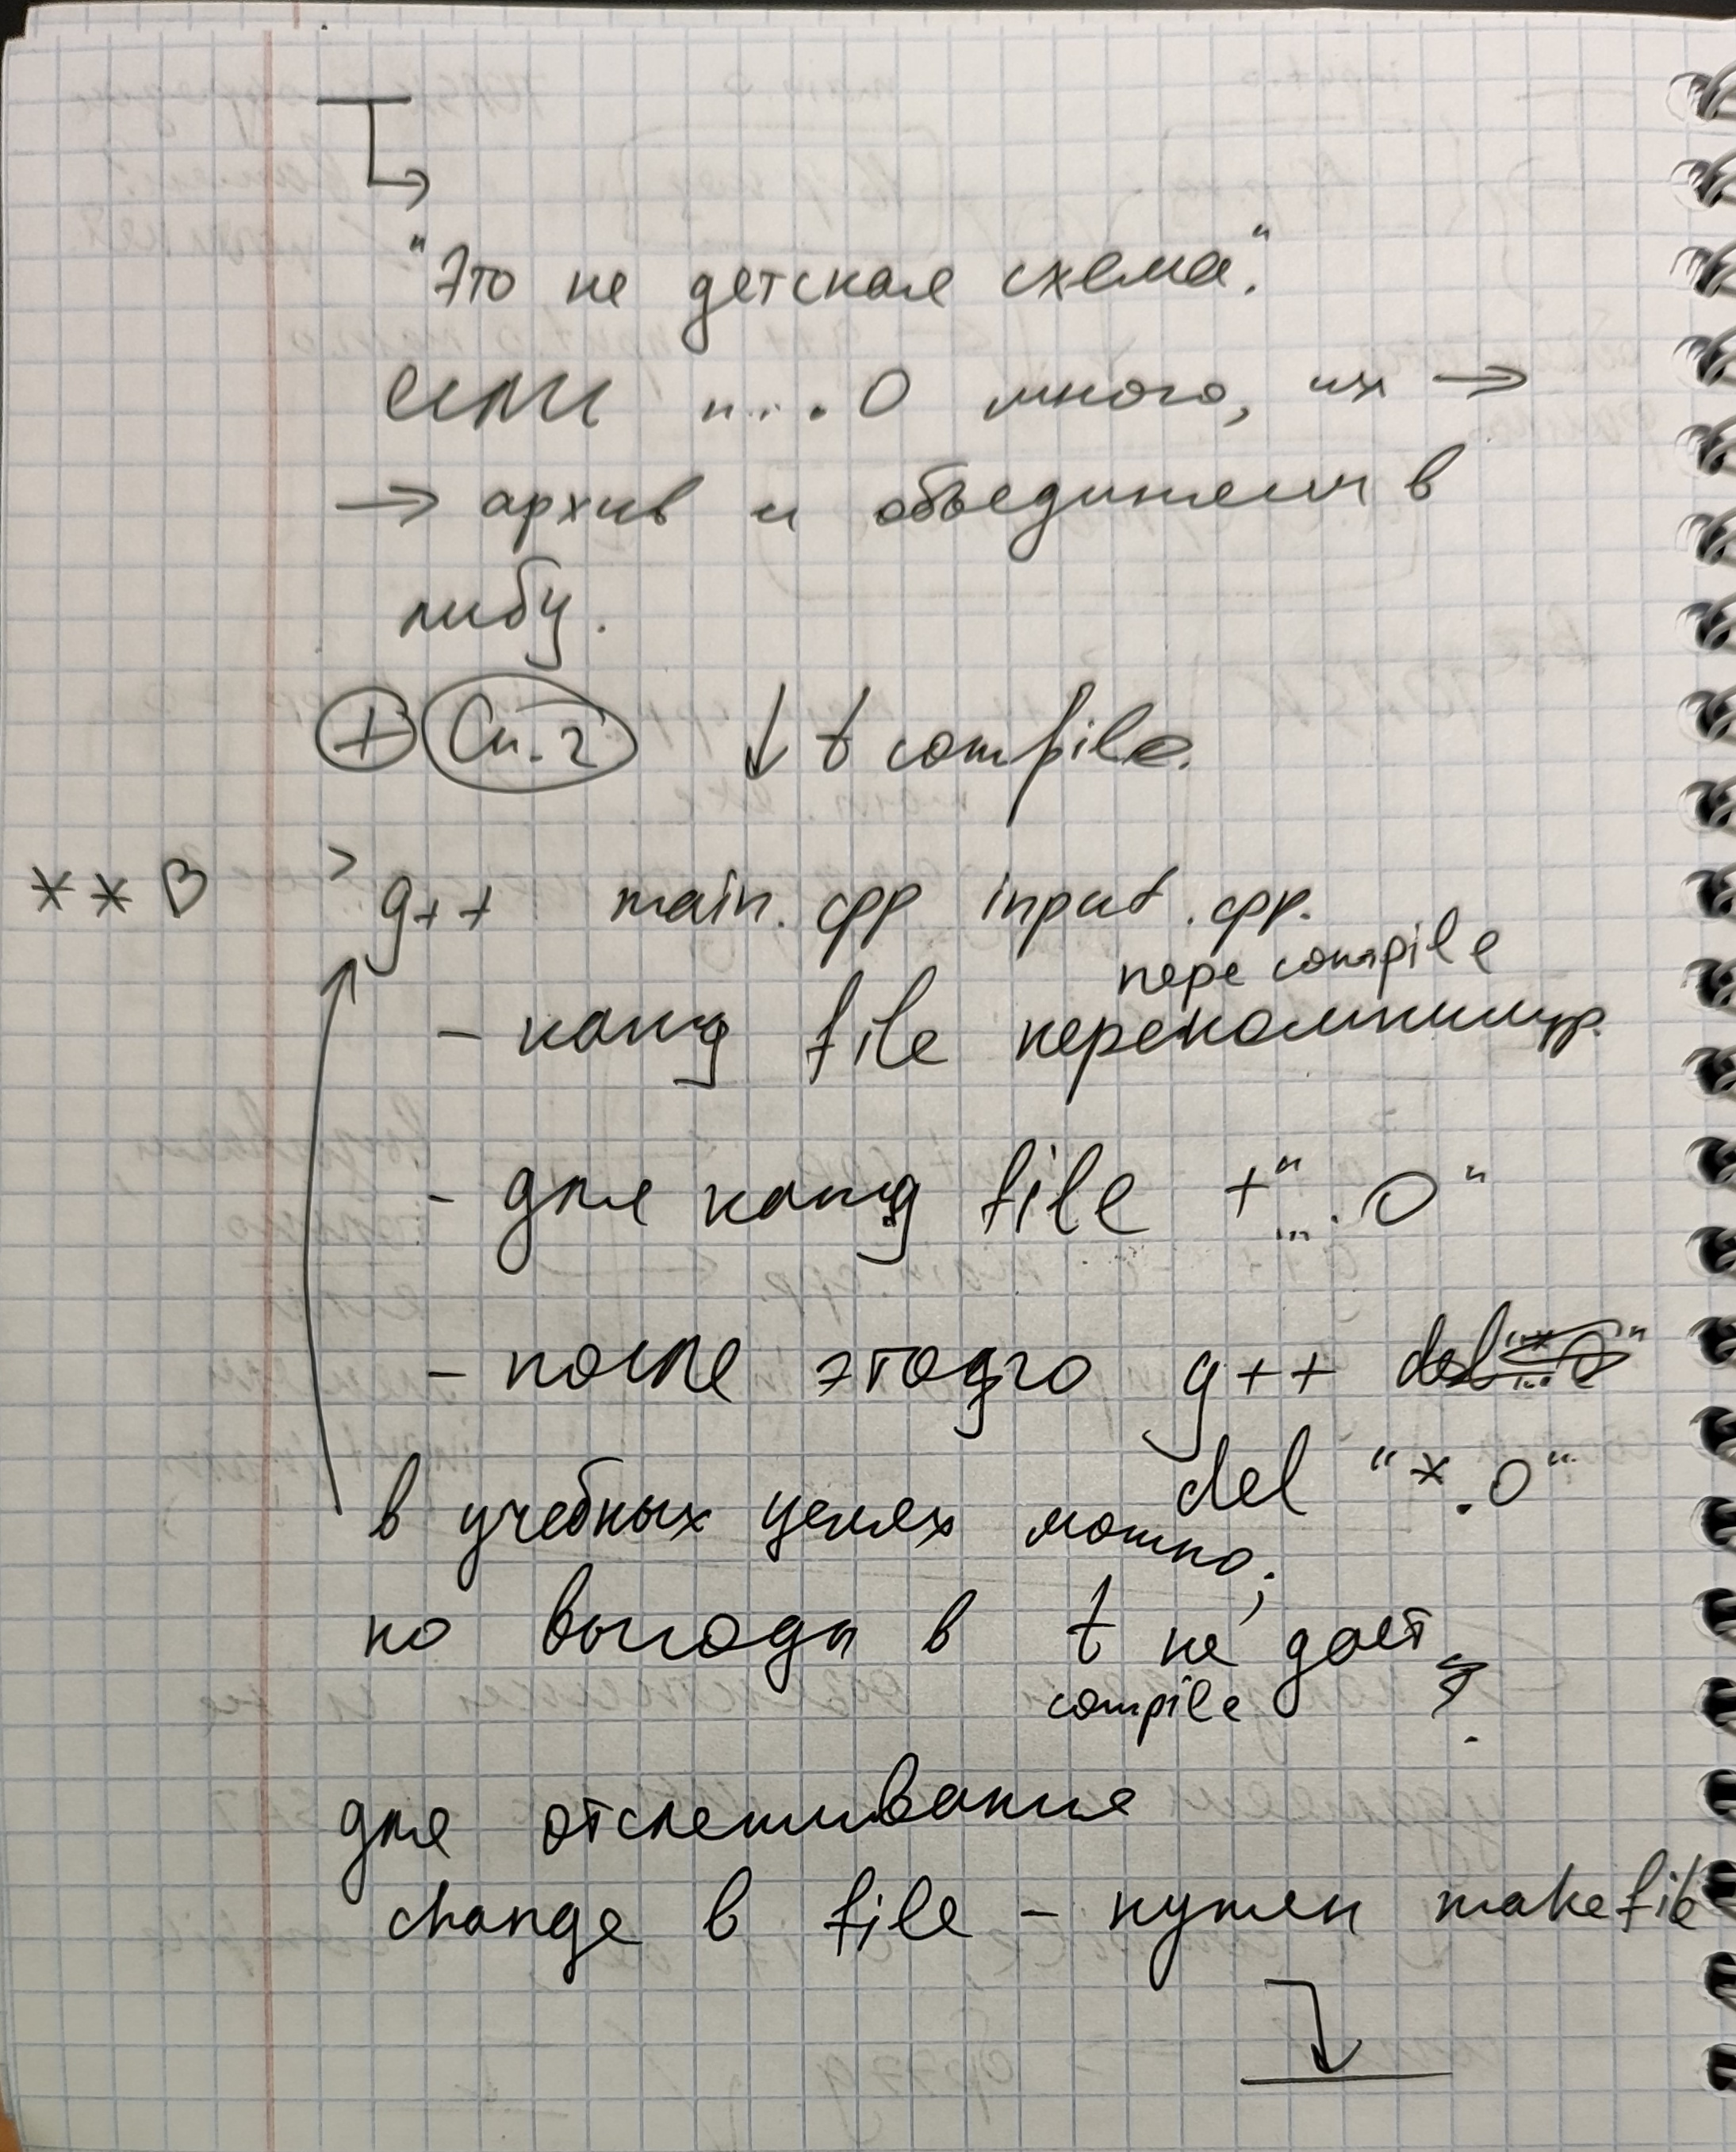 "Это не детская схема".
если "... .о много, их →
→ архив и объединяем в
либу.
+ Сп. 2 ↓ t compile.
** В > g++ main.cpp input.cpp.
пере compile
- кажд file перекомпилир.
- для кажд file + "... .о"
- после этого g++ del
del "*.о"
в учебных целях можно;
но выгоды в t не даёт
compile
для отслеживания
change в file - нужен makefile